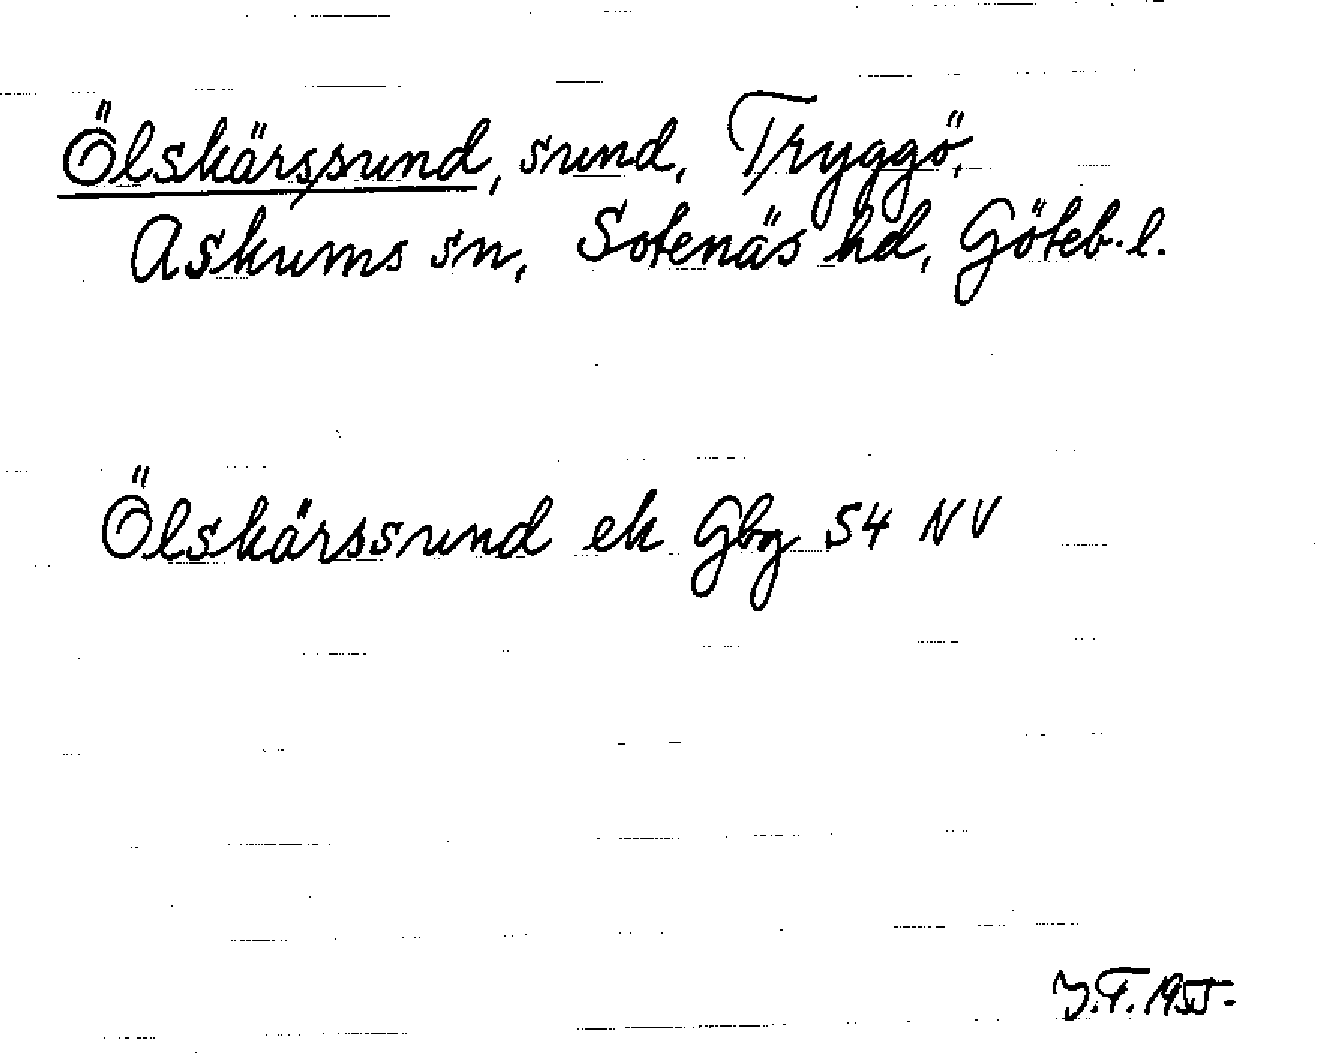 Ölskärssund, sund, Tryggö,
Askums sn, Sotenäs hd, Göteb. l.
Ölskärssund ek Gbg 54 NV
Y.F. 1955.